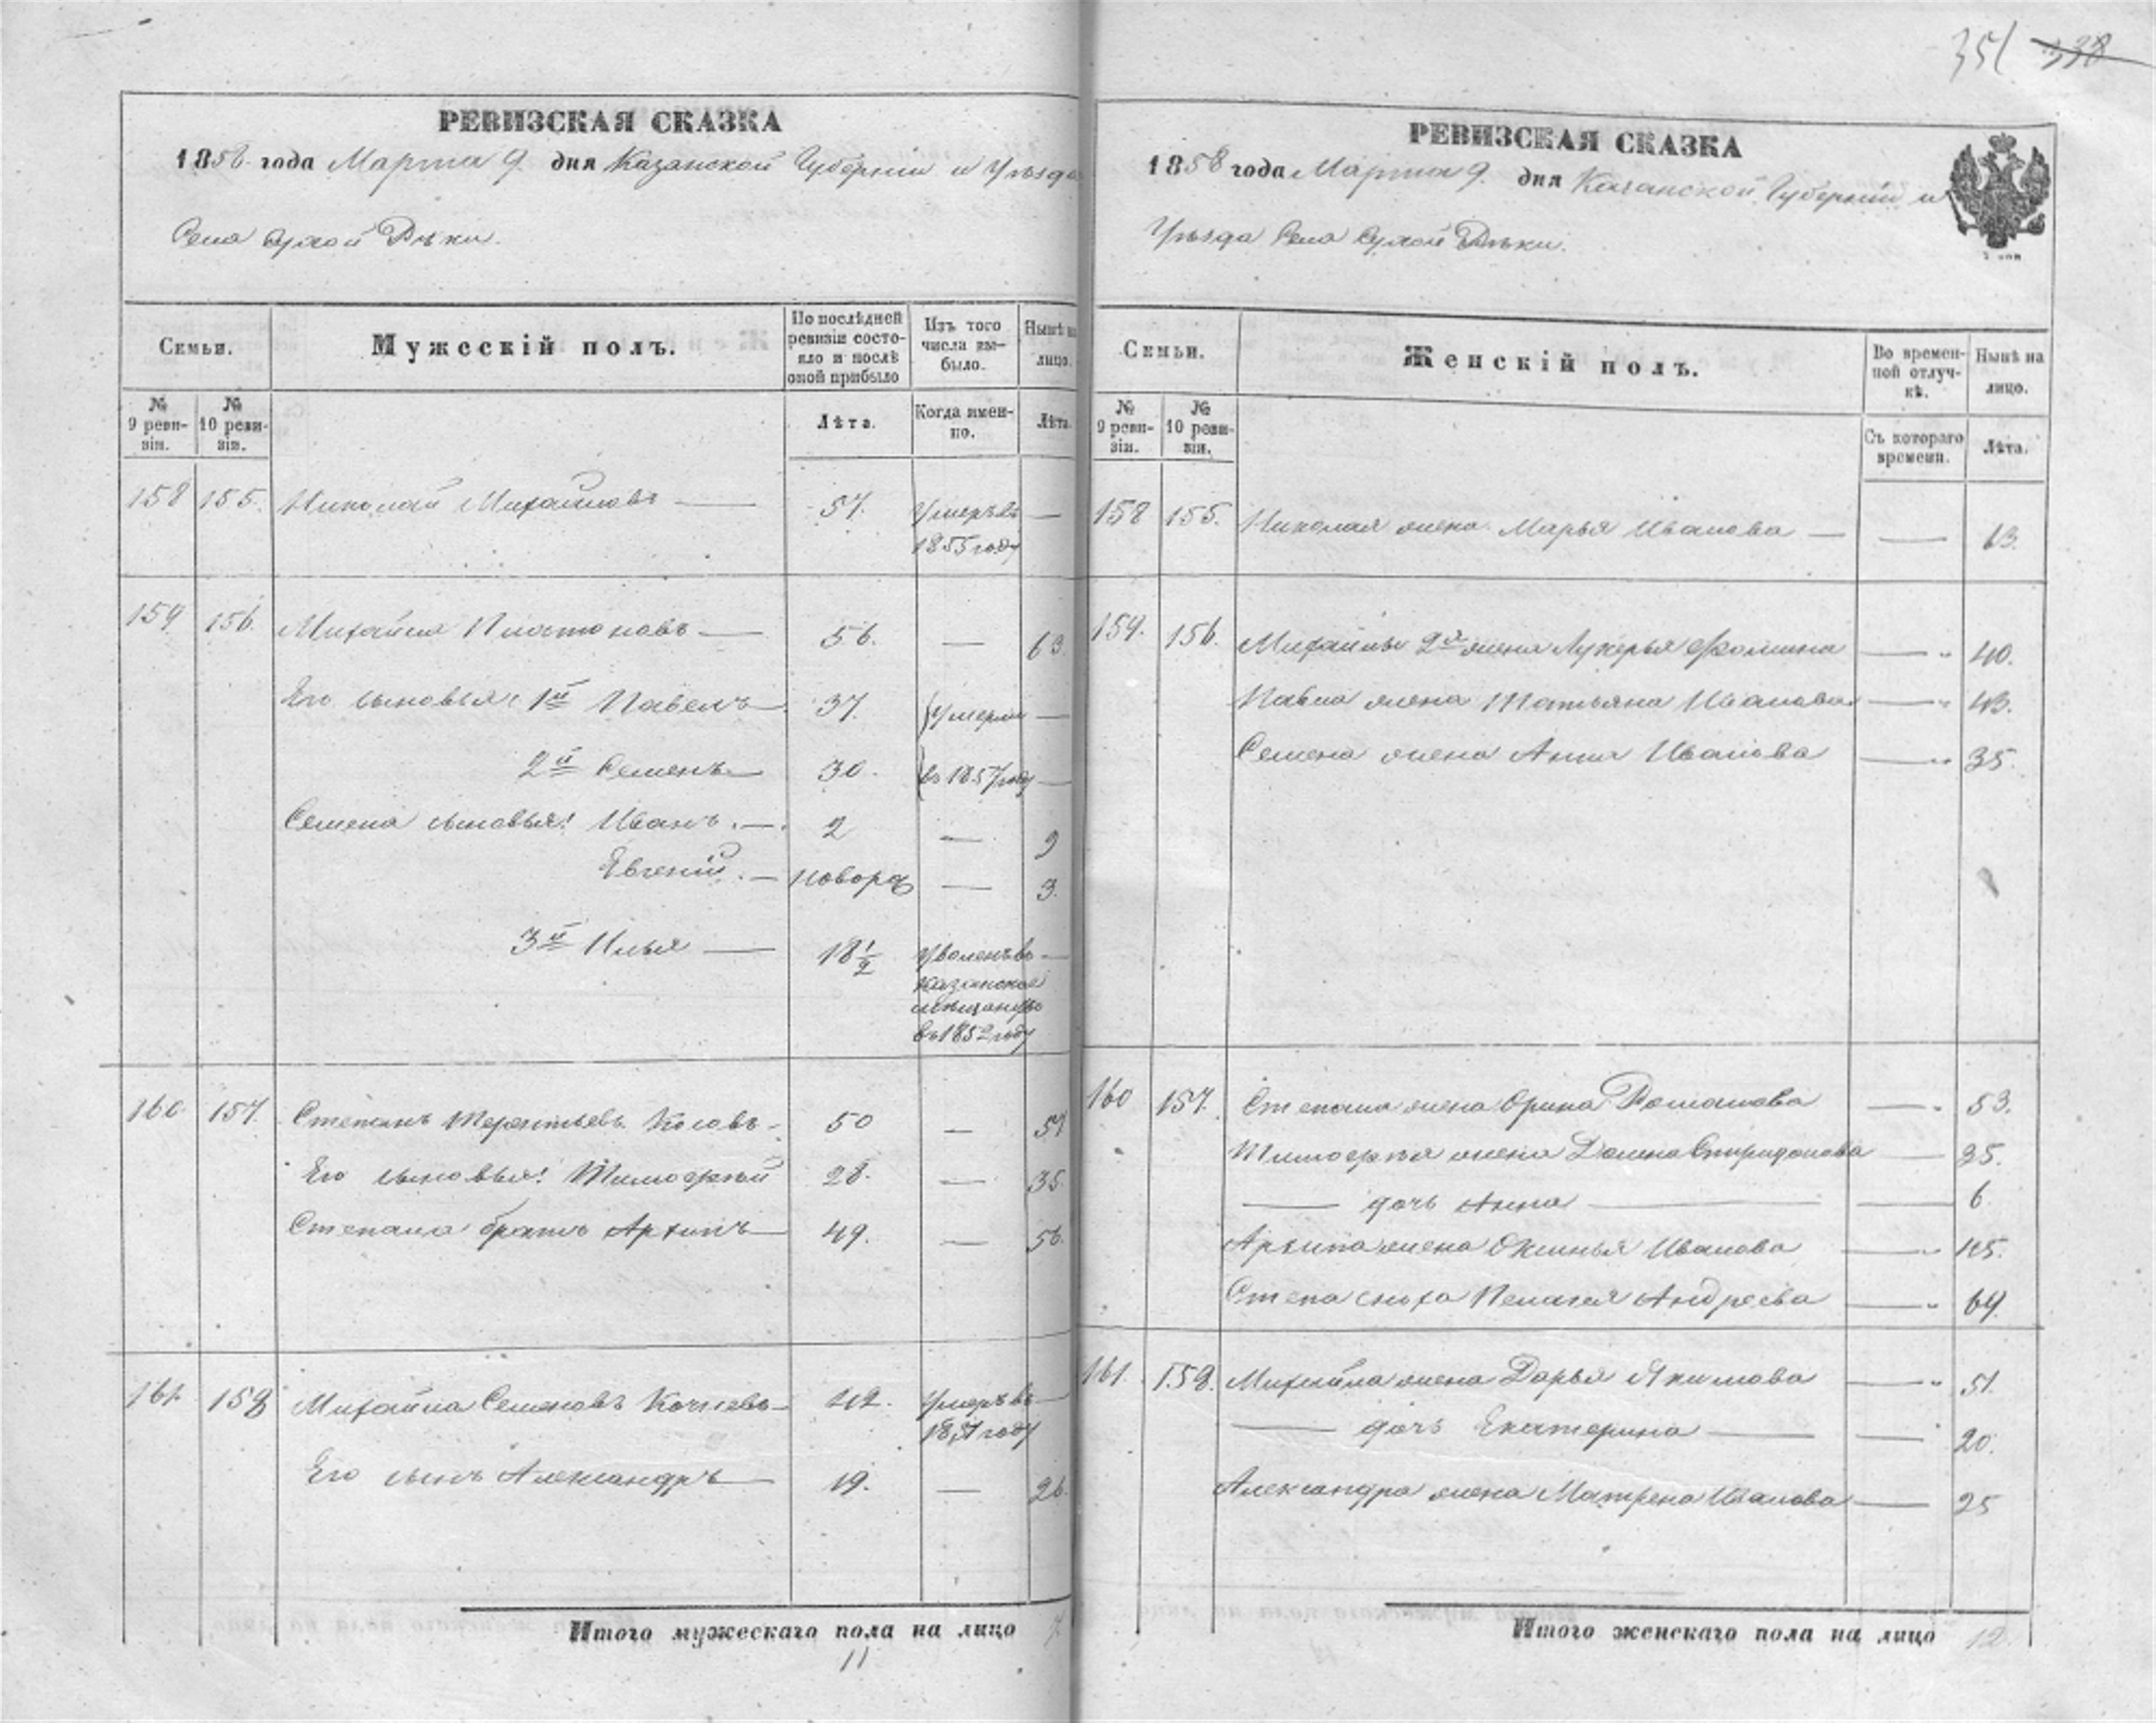 351 338
РЕВИЗСКАЯ СКАЗКА
1858 года Марта 9 дня Казанской Губерніи и Уѣзда
Села Сухой Рѣки.
Семьи.
Мужескій полъ.
По послѣдней ревизіи состояло и послѣ оной прибыло
Изъ того числа выбыло.
Нынѣ на лицо.
№ 9 ревизіи.
№ 10 ревизіи.
Лѣта.
Когда именно.
Лѣта.
158 155. Николай Михайловъ — 57. Умеръ въ —
1855 году
159 156. Михайла Платоновъ — 56. — 63.
Его сыновья: 1й Павелъ — 37. Умерли —
2й Семенъ — 30. въ 1857 году —
Семена сыновья: Иванъ — 2 — 9
Евгеній — новорож — 3.
3й Илья — 18 1/2 Уволенъ въ —
Казанское
мѣщанство
въ 1852 году
160 157. Степанъ Терентьевъ — 50 — 57
Его сыновья: Тимофей 28. — 35
Степана братъ Архипъ — 49. — 56.
161. 158 Михайла Семеновъ — 42. Умеръ въ —
году
Его сынъ Александръ — 19. — 26.
Итого мужескаго пола на лицо 7
11
РЕВИЗСКАЯ СКАЗКА
1858 года Марта 9. дня Казанской Губерніи и
Уѣзда Села Сухой Рѣки.
Семьи.
Женскій полъ.
Во временной отлучкѣ.
Нынѣ на лицо.
№ 9 ревизіи.
№ 10 ревизіи.
Съ котораго времени.
Лѣта.
158 155. Николая жена Марья Иванова — — 63.
159. 156. Михайлы 2я жена Лукерья Фомина — 40.
Павла жена Татьяна Иванова — 43.
Семена жена Анна Иванова — 35.
160 157. Степана жена Орина Романова — 53.
Тимофея жена Домна Спиридонова — 35.
— дочь Анна — — 6
Архипа жена Оксинья Иванова — 45.
Степа сноха Пелагея Андреева — 64.
161. 158. Михайла жена Дарья Якимова — 51.
— дочь Екатерина — — 20.
Александра жена Матрена Иванова — 25
Итого женскаго пола на лицо 12.